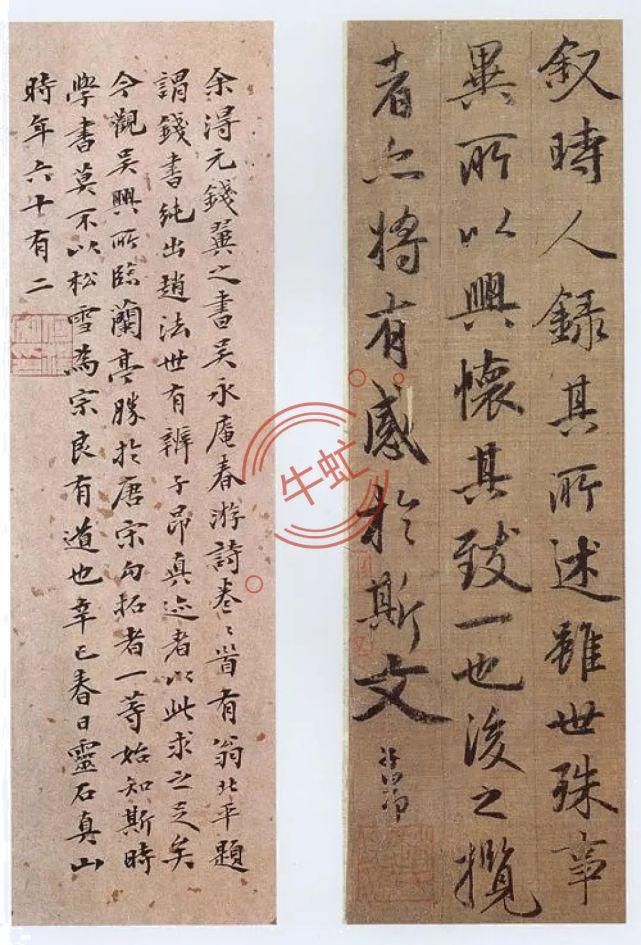 叙時人録其所述雖世殊事
異所以興懷其致一也後之攬
者亦将有感於斯文
余得元錢翼之書吴永庵春游詩卷〻首有翁北平題
謂錢書純出趙法世有辨子昂真迹者以此求之足矣
今觀吴興所臨蘭亭勝於唐宋勾拓者一等始知斯時
學書莫不以松雪為宗良有道也辛巳春日靈石真山
時年六十有二
牛虹